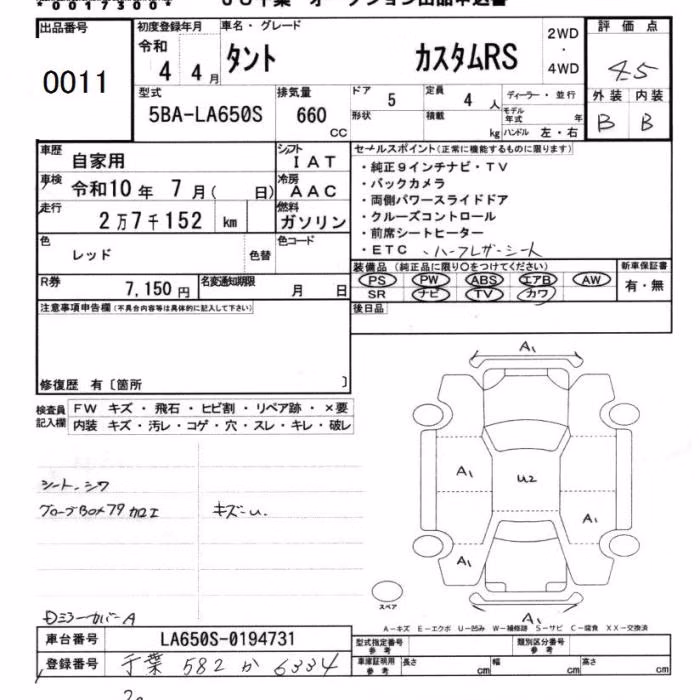 *0017300*
出品番号
0011
初度登録年月
令和
4 4月
車名・グレード
タント カスタムRS
2WD
・
4WD
評価点
4.5
外装 内装
B B
型式
5BA-LA650S
排気量
660
CC
ドア
5
形状
定員
4 人
積載
kg
ディーラー・並行
モデル年式 年
ハンドル 左・右
車歴
自家用
シフト
IAT
車検
令和10年 7月( 日)
冷房
AAC
走行
2万7千152 km
燃料
ガソリン
色
レッド
色替
色コード
R券
7,150円
名変通知期限
月 日
セールスポイント(正常に機能するものに限ります)
・純正9インチナビ・TV
・バックカメラ
・両側パワースライドドア
・クルーズコントロール
・前席シートヒーター
・ETC ・ハーフレザーシート
装備品(純正品に限り○をつけてください)
PS PW ABS エアB AW
SR ナビ TV カワ
新車保証書
有・無
後日品
注意事項申告欄(不具合内容等は具体的に記入して下さい)
修復歴 有〔箇所 〕
検査員記入欄
FW キズ・飛石・ヒビ割・リペア跡・×要
内装 キズ・汚レ・コゲ・穴・スレ・キレ・破レ
シート、シワ
グローブBOX 加工
キズ・U.
A1
A1
U2
A1
A1
A1
スペア
A-キズ E-エクボ U-凹み W-補修跡 S-サビ C-腐食 XX-交換済
車台番号
LA650S-0194731
登録番号
千葉 582 か 6334
型式指定番号
参考
類別区分番号
参考
車庫証明用
参考
長さ cm
幅 cm
高さ cm